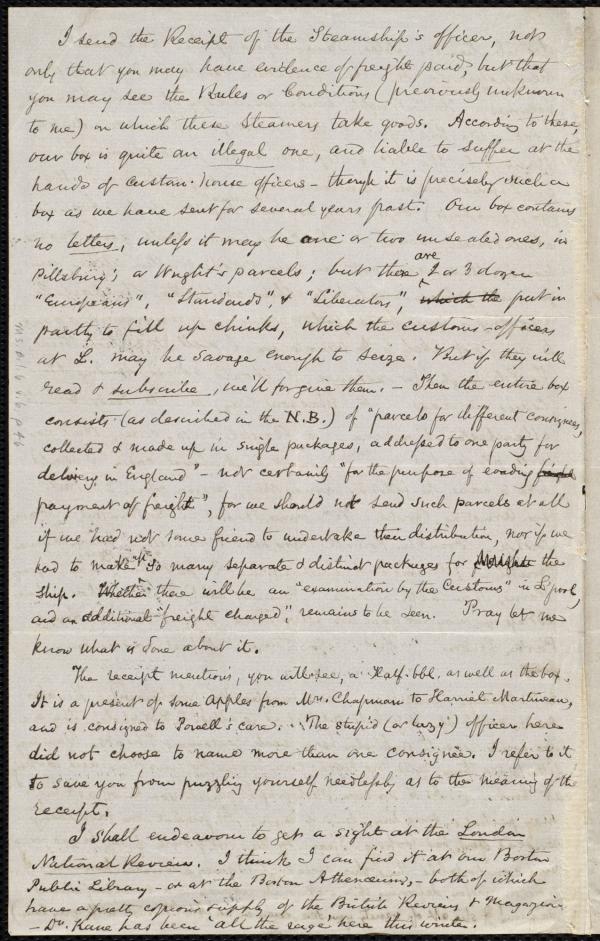 I send the Receipt of the Steamship's officer, not
only that you may have evidence of freight paid, but that
you may see the Rules or Conditions (previously unknown
to me) on which these Steamers take goods. According to these,
our box is quite an illegal one, and liable to suffer at the
hands of Custom-house officers – though it is precisely such a
box as we have sent for several years past. Our box contains
no letters, unless it may be one or two unsealed ones, in
Pillsbury's or Wright's parcels; but there are 2 or 3 dozen
"Europeans", "Standards", & "Liberators", which the put in
partly to fill up chinks, which the customs-officers
at L. may be savage enough to seize. But if they will
read & subscribe, we'll forgive them. – Then the entire box
consists (as described in the N.B.) of "parcels for different consignees,
collected & made up in single packages, addressed to one party for
delivery in England" – not certainly "for the purpose of evading
payment of freight", for we should not send such parcels at all
if we had not some friend to undertake their distribution, nor if we
had to make so many separate & distinct packages for the
ship. Whether there will be an "examination by the Customs" in L'pool,
and an additional "freight charged", remains to be seen. Pray let me
know what is done about it.
The receipt mentions, you will see, a Half-bbl. as well as the box.
It is a present of some Apples from Mrs. Chapman to Harriet Martineau,
and is consigned to Powell's care. The stupid (or lazy) officer here
did not choose to name more than one consignee. I refer to it
to save you from puzzling yourself needlessly as to the meaning of the
receipt.
I shall endeavour to get a sight at the London
National Review. I think I can find it at our Boston
Public Library – or at the Boston Athenaeum, – both of which
have a pretty copious supply of the British Reviews & Magazines
– Dr. Kane has been 'all the rage' here this winter.